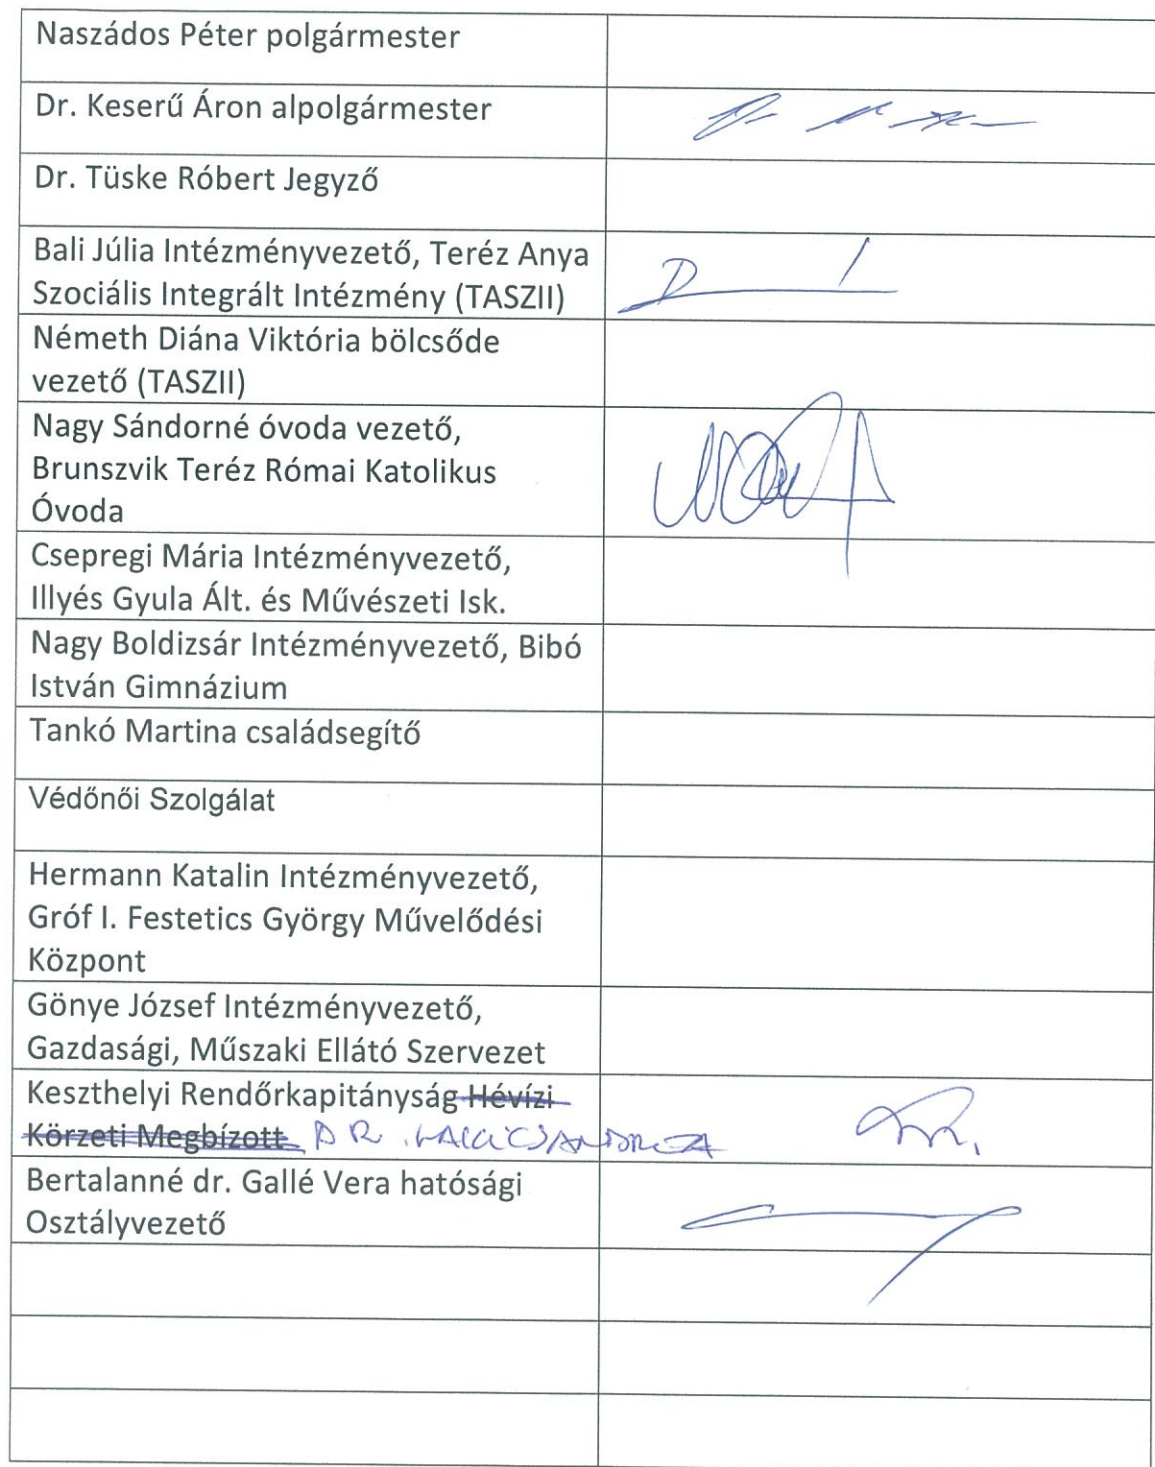 Naszádos Péter polgármester
Dr. Keserű Áron alpolgármester
Dr. Tüske Róbert Jegyző
Bali Júlia Intézményvezető, Teréz Anya
Szociális Integrált Intézmény (TASZII)
Németh Diána Viktória bölcsőde
vezető (TASZII)
Nagy Sándorné óvoda vezető,
Brunszvik Teréz Római Katolikus
Óvoda
Csepregi Mária Intézményvezető,
Illyés Gyula Ált. és Művészeti Isk.
Nagy Boldizsár Intézményvezető, Bibó
István Gimnázium
Tankó Martina családsegítő
Védőnői Szolgálat
Hermann Katalin Intézményvezető,
Gróf I. Festetics György Művelődési
Központ
Gönye József Intézményvezető,
Gazdasági, Műszaki Ellátó Szervezet
Keszthelyi Rendőrkapitányság Hévízi
Körzeti Megbízott DR.
Bertalanné dr. Gallé Vera hatósági
Osztályvezető